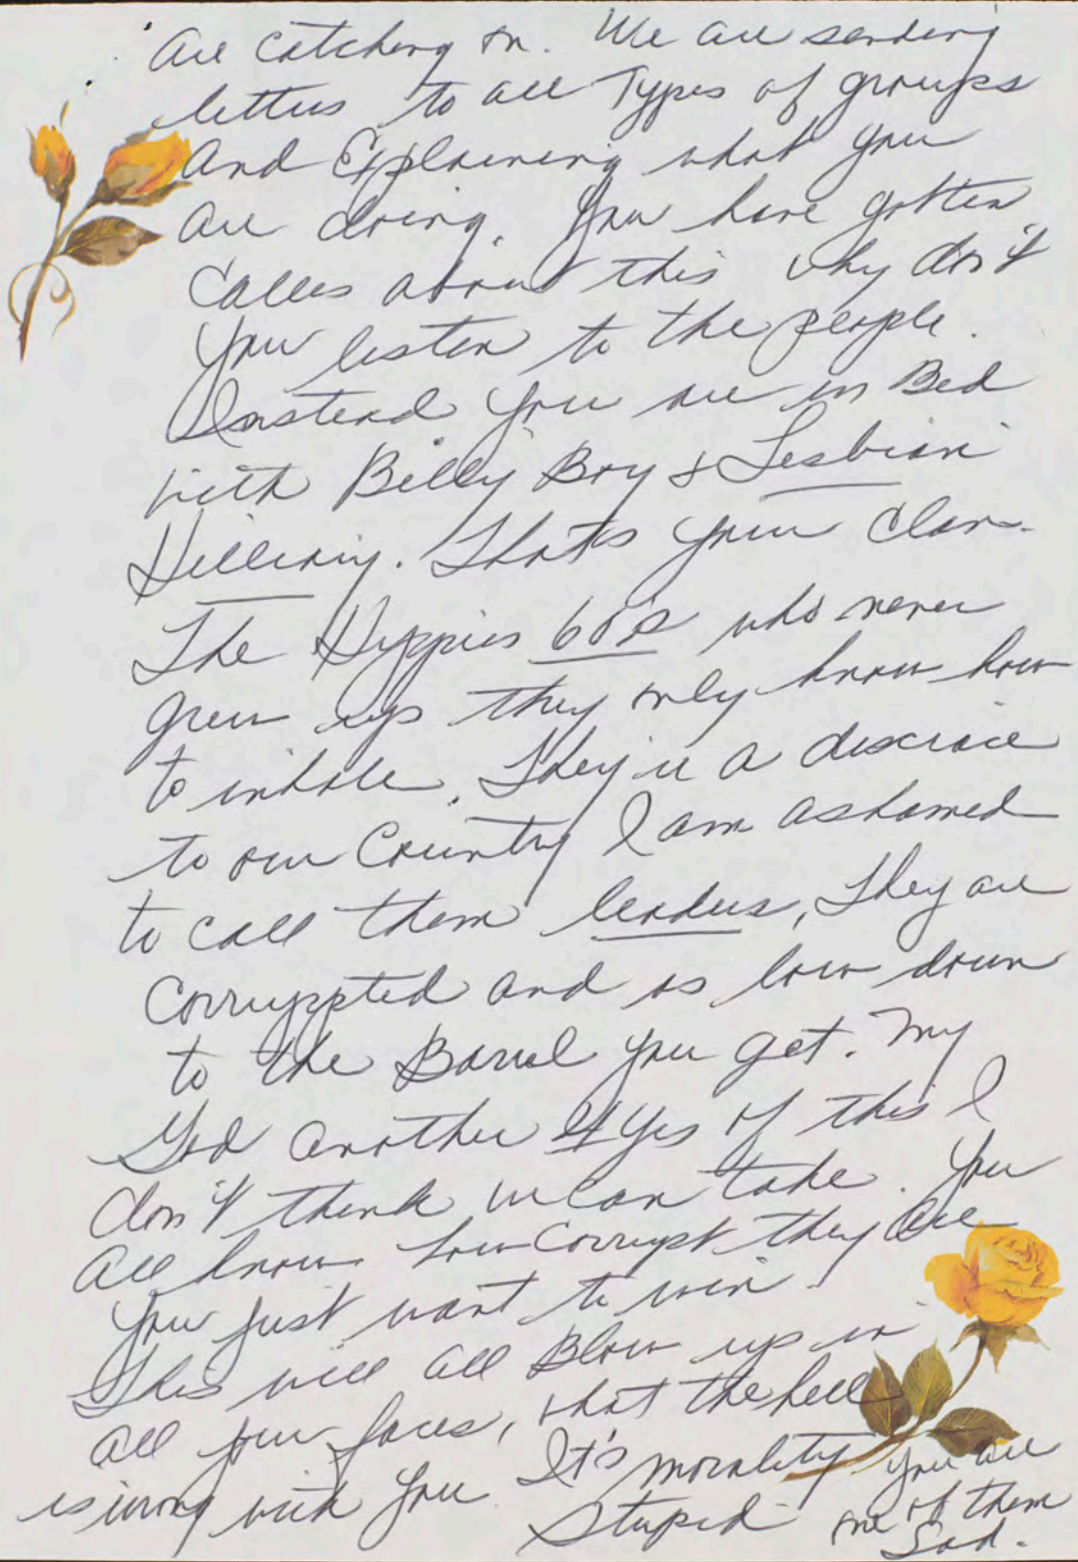 are catching on. We are sending
letters to all Types of groups
and Explaining what you
are doing. You have gotten
Calls about this why don't
you listen to the people.
Instead you are in Bed
with Billy Boy & Lesbian
Hillary. That's your Clan.
The Hippies 60's who never
grew up they only know how
to inhale. They're a discrace
to our Country I am ashamed
to call them leaders, They are
Corruppted and as low down
to the Barrel you get. My
God another 4 yrs of this I
don't think we can take. You
all know how Corrupt they are
you just want to win.
This will all Blow up in
all your faces, what the hell
is wrong with you It's morality
Stupid you are
one of them
Sad.